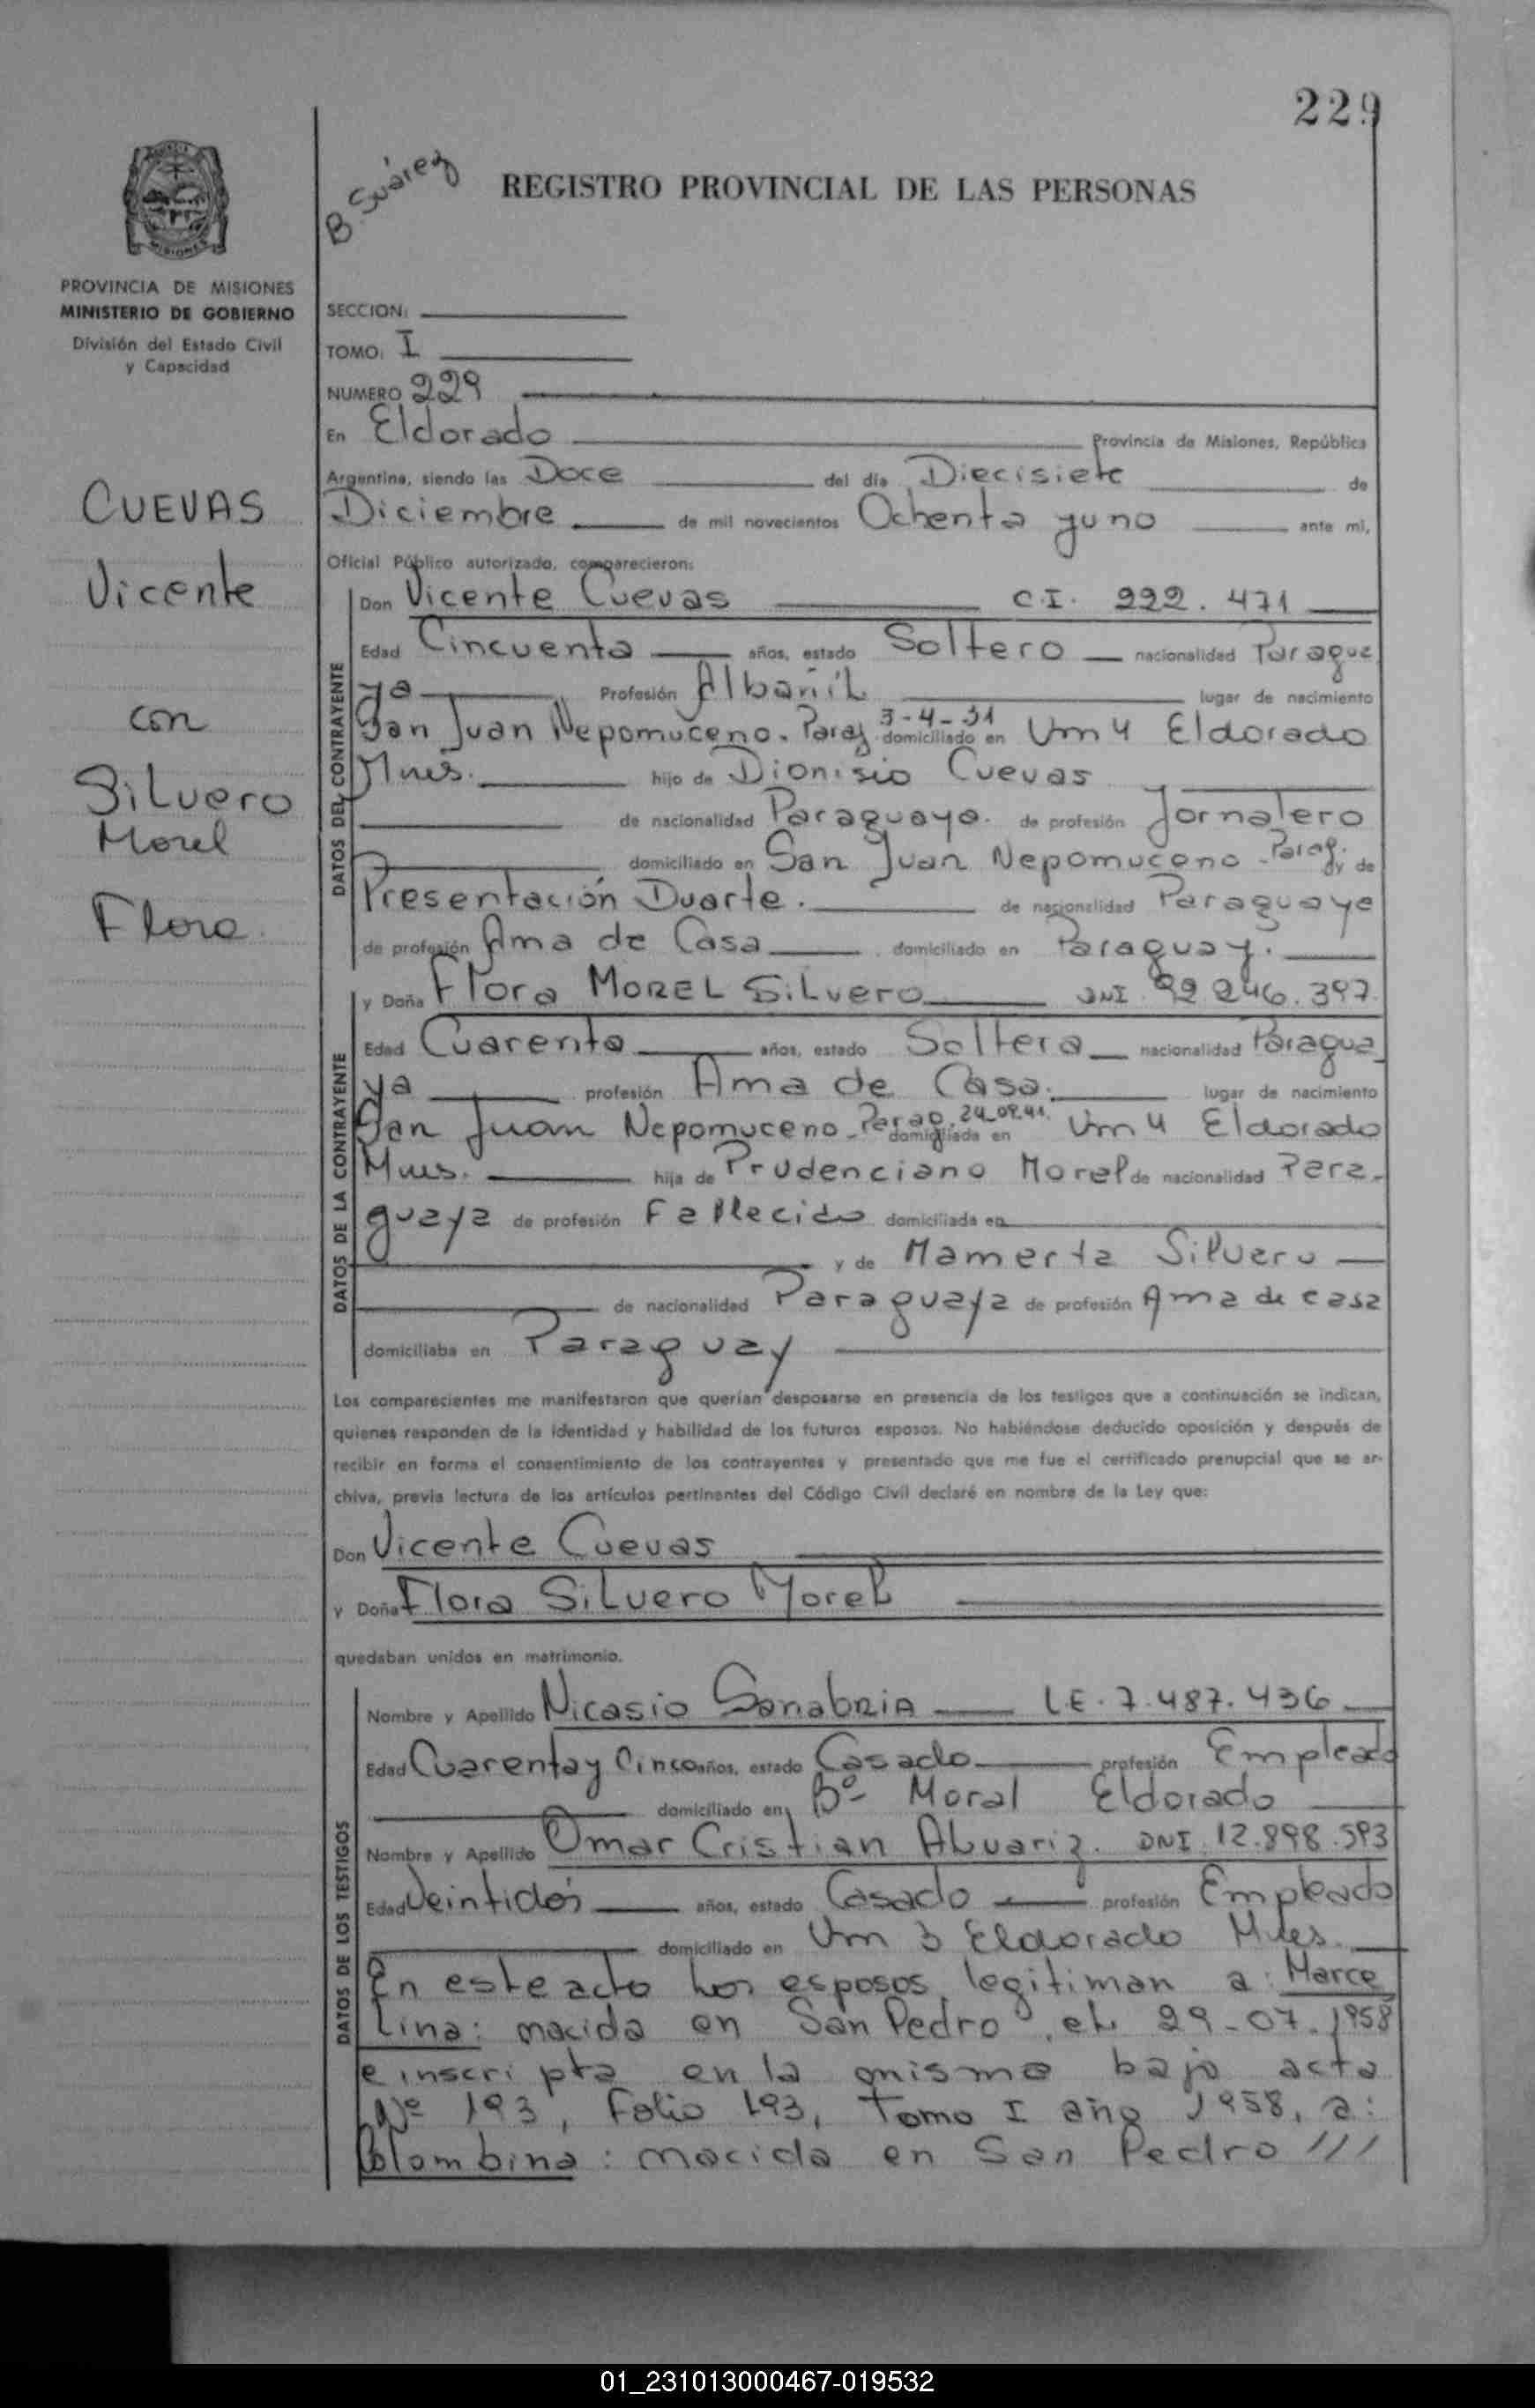 229
B. Suárez
REGISTRO PROVINCIAL DE LAS PERSONAS
MISIONES
PROVINCIA DE MISIONES
MINISTERIO DE GOBIERNO
División del Estado Civil
y Capacidad
SECCION:
TOMO: I
NUMERO 229
En Eldorado Provincia de Misiones, República
Argentina, siendo las Doce del día Diecisiete de
Diciembre de mil novecientos Ochenta y uno ante mí,
Oficial Público autorizado, comparecieron:
CUEVAS
Vicente
con
Silvero
Morel
Flora
DATOS DEL CONTRAYENTE
Don Vicente Cuevas C.I. 222.471
Edad Cincuenta años, estado Soltero nacionalidad Paragua
ya Profesión Albañil lugar de nacimiento
San Juan Nepomuceno. Parag. 3-4-31 domiciliado en Km 4 Eldorado
Mnes. hijo de Dionisio Cuevas
de nacionalidad Paraguaya. de profesión Jornalero
domiciliado en San Juan Nepomuceno - Parag. y de
Presentación Duarte. de nacionalidad Paraguaya
de profesión Ama de Casa domiciliado en Paraguay.
DATOS DE LA CONTRAYENTE
y Doña Flora MOREL Silvero DNI 92 246.397.
Edad Cuarenta años, estado Soltera nacionalidad Paragua
ya profesión Ama de Casa. lugar de nacimiento
San Juan Nepomuceno - Parag. 24-09-41. domiciliada en Km 4 Eldorado
Mnes. hija de Prudenciano Morel de nacionalidad Para-
guaya de profesión Fallecido domiciliada en
y de Mamerta Silvero
de nacionalidad Paraguaya de profesión Ama de casa
domiciliaba en Paraguay
Los comparecientes me manifestaron que querían desposarse en presencia de los testigos que a continuación se indican,
quienes responden de la identidad y habilidad de los futuros esposos. No habiéndose deducido oposición y después de
recibir en forma el consentimiento de los contrayentes y presentado que me fue el certificado prenupcial que se ar-
chiva, previa lectura de los artículos pertinentes del Código Civil declaré en nombre de la Ley que:
Don Vicente Cuevas
y Doña Flora Silvero Morel
quedaban unidos en matrimonio.
DATOS DE LOS TESTIGOS
Nombre y Apellido Nicasio Sanabria L.E. 7.487.436
Edad Cuarenta y Cinco años, estado Casado profesión Empleado
domiciliado en Bº Moral Eldorado
Nombre y Apellido Omar Cristian Alvariz. DNI 12.898.593
Edad Veintidós años, estado Casado profesión Empleado
domiciliado en Km 3 Eldorado Mnes.
En este acto los esposos legitiman a: Marce
lina: nacida en San Pedro, el 29-07-1958
e inscripta en la misma bajo acta
Nº 193, Folio 193, Tomo I año 1958, a:
Colombina: nacida en San Pedro ///
01_231013000467-019532